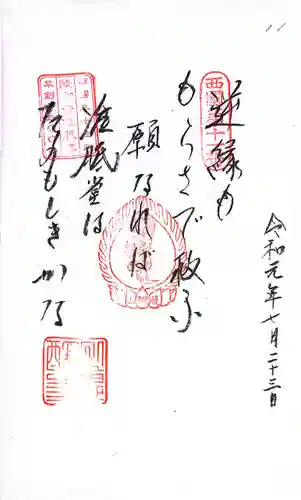 逆縁も
もらさで救ふ
願なれば
准胝堂は
たのもしきかな
令和元年七月二十三日